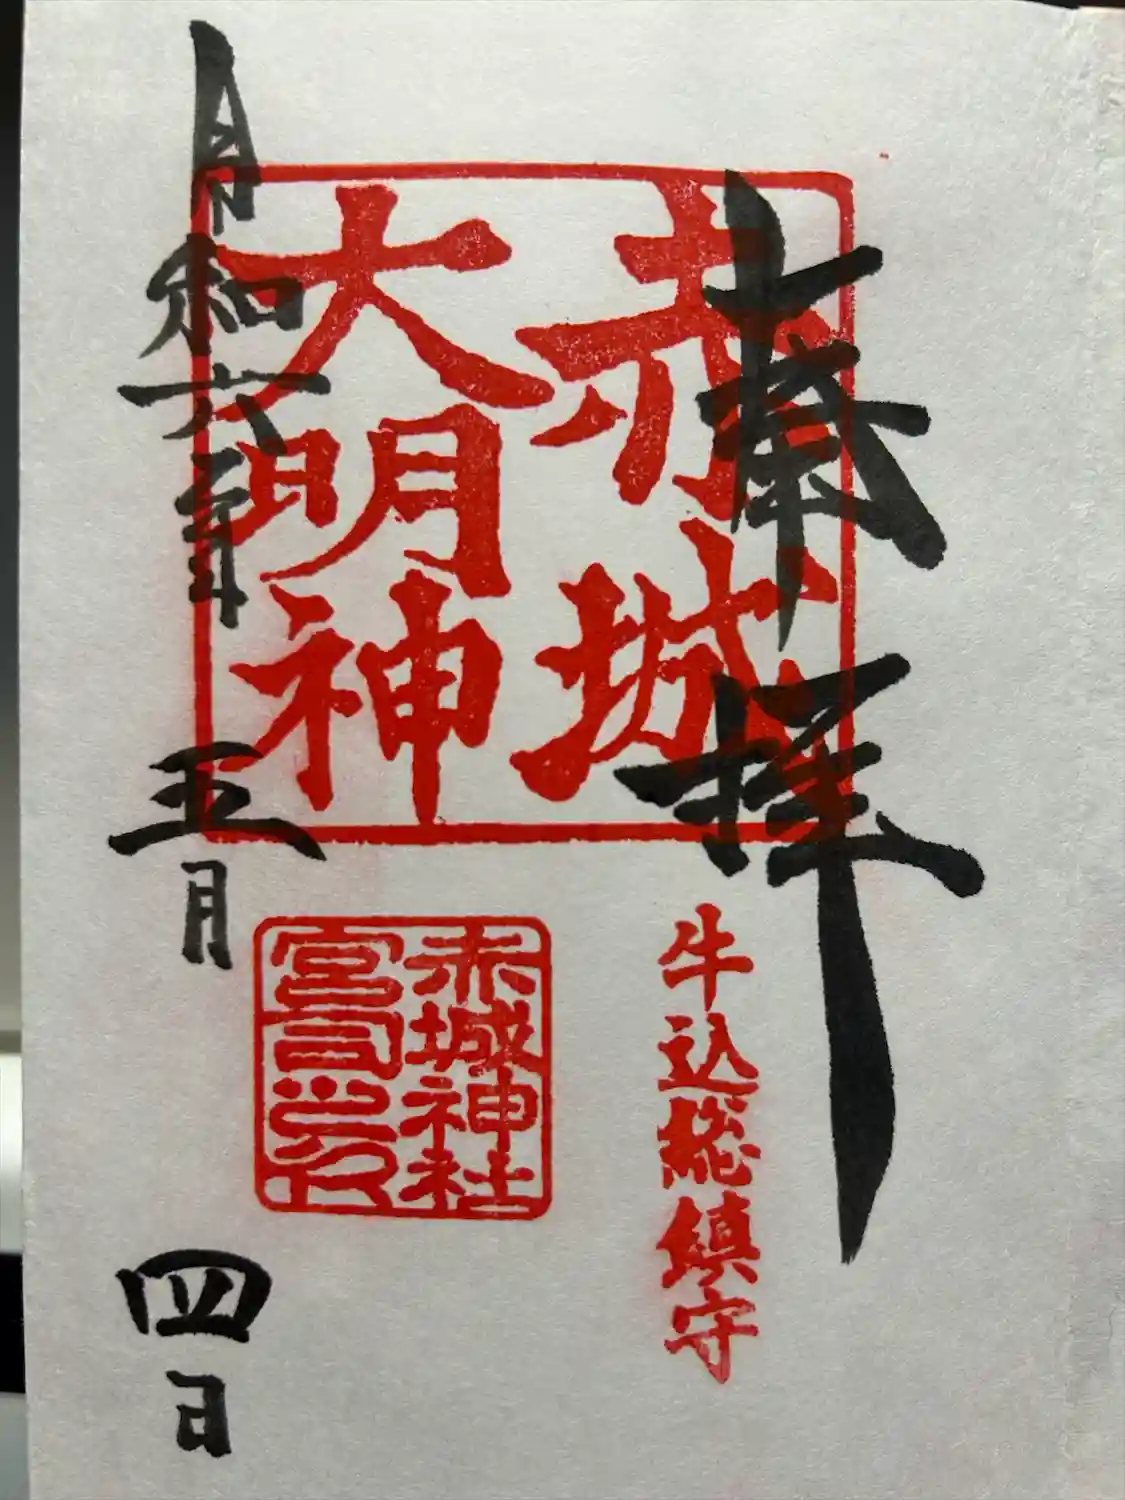 奉拝
赤城
大明神
牛込総鎮守
赤城神社
宮司之印
令和六年
五月
四日